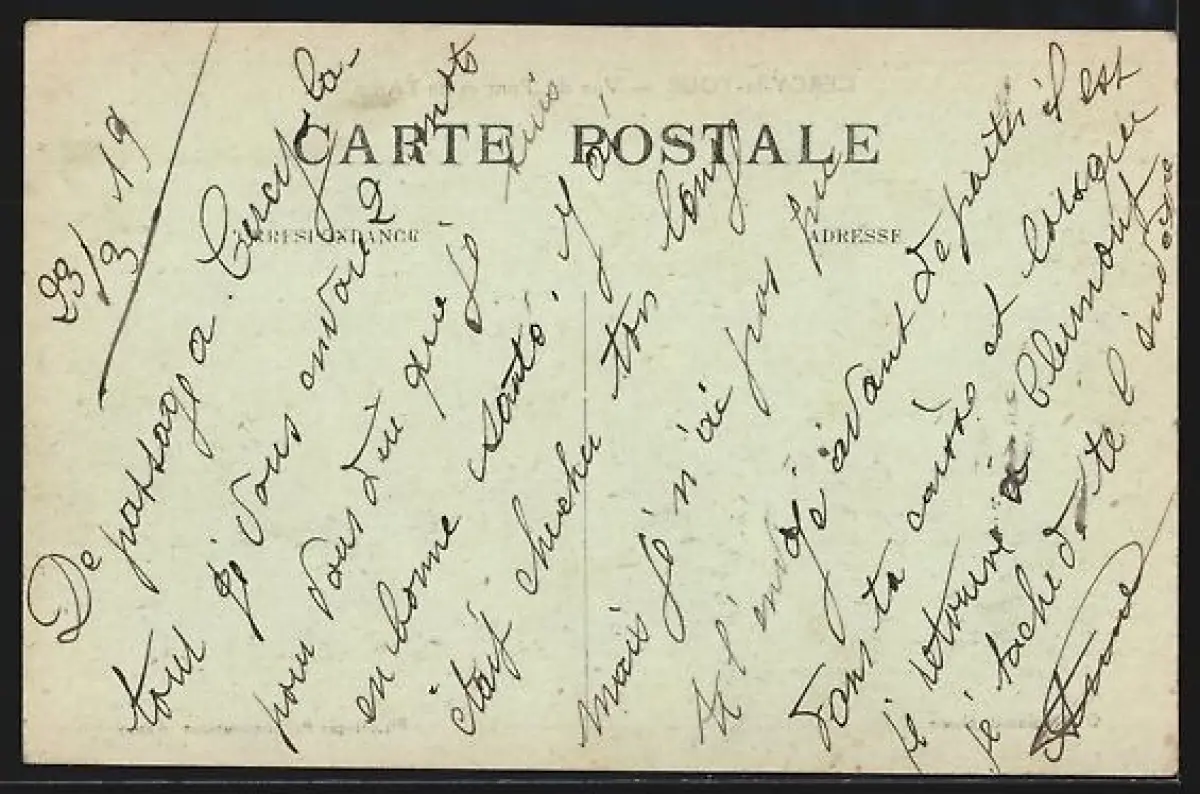 CARTE POSTALE
CORRESPONDANCE
ADRESSE
23/3 19
De passage a Cercy-la-
tour je vous envoie 2 mots
pour vous dire que je suis
en bonne santé j'ai
étais cherche ton long
mais je n'ai pas pu
te l'en je avant de partir il est
dans ta caisse et lorsque
je retourne a Clermont
je tache de te l'induire